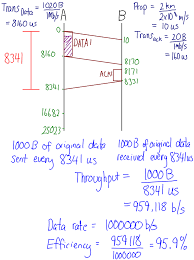 Trans Data = 1020B / 1Mb/s = 8160 us
A B
Prop = 2km / 2x10^8 m/s = 10 us
Trans Ack = 20B / 1Mb/s = 160us
0
DATA1
10
8160
8170
ACK
8171
8341
8331
8341
16682
25023
1000B of original data sent every 8341 us
1000B of original data received every 8341us
Throughput = 1000B / 8341us
= 959,118 b/s
Data rate = 1000000 b/s
Efficiency = 959118 / 1000000 = 95.9%